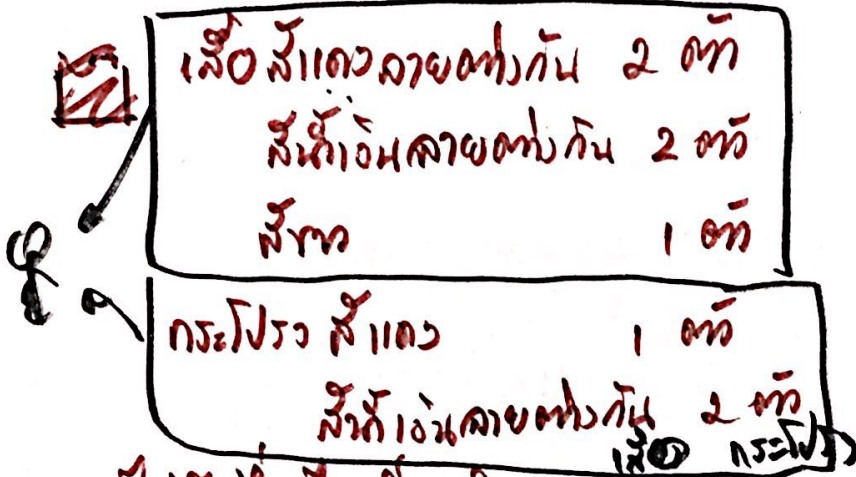 เสื้อ สีแดงลายต่างกัน 2 ตัว
สีน้ำเงินลายต่างกัน 2 ตัว
สีขาว 1 ตัว
กระโปรง สีแดง 1 ตัว
สีน้ำเงินลายต่างกัน 2 ตัว
เสื้อ กระโปรง